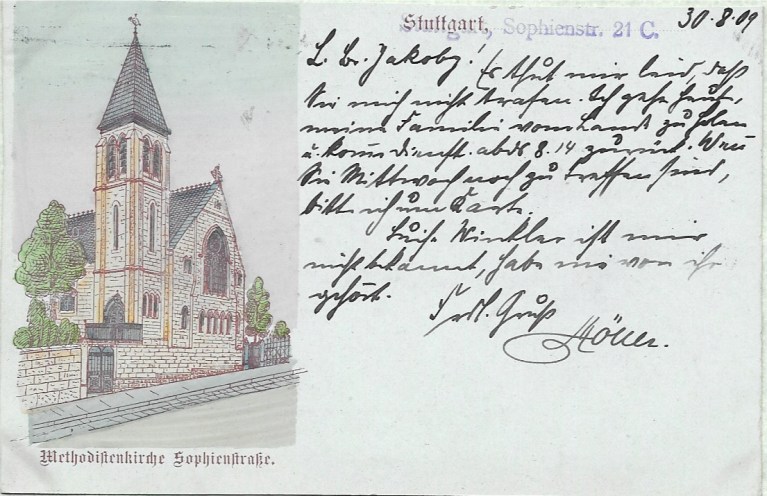 Stuttgart.
Stuttgart, Sophienstr. 21 C.
30.8.09
L. Br. Jakoby! Es thut mir leid, daß
Sie mich nicht trafen. Ich gehe heute,
meine Familie vom Lande zu holen
u. komme dienst. abds 8.14 zurück. Wenn
Sie Mittwoch noch zu treffen sind,
bitte ich um Karte.
Winkler ist mir
nicht bekannt, habe nie von ihr
gehört.
Frdl. Gruß
Möller.
Methodistenkirche Sophienstraße.